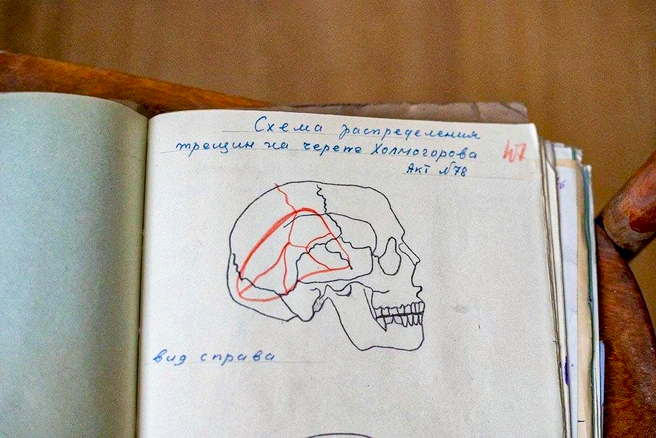 Схема распределения
трещин на черепе Холмогорова
Акт №78
вид справа